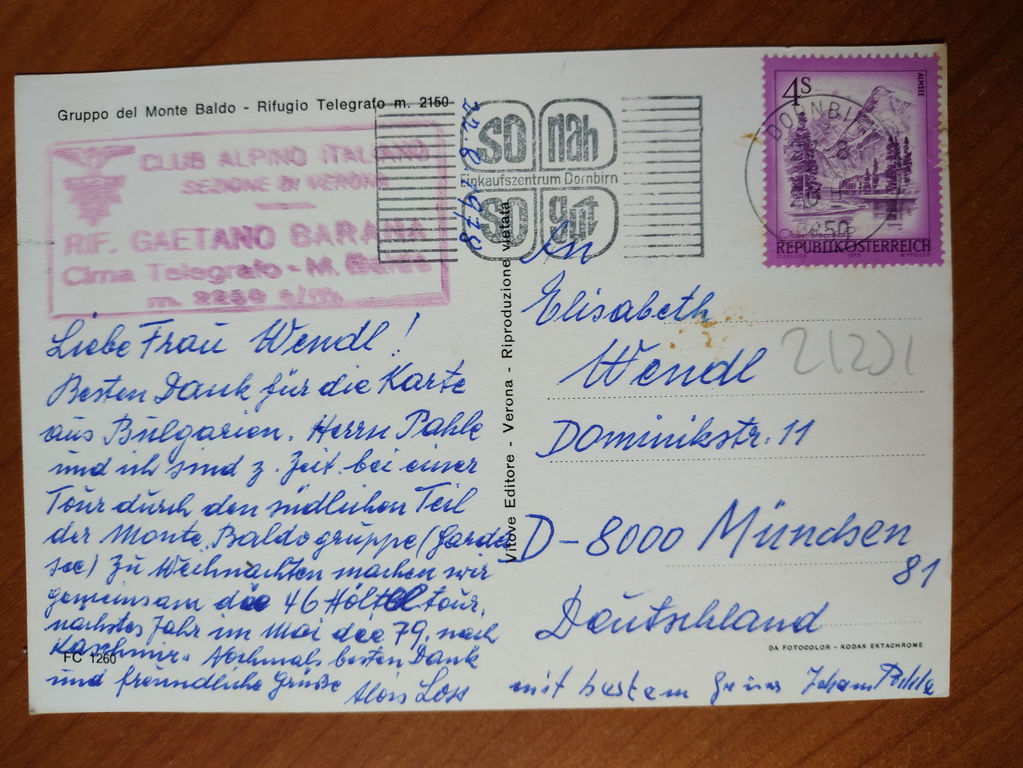 Gruppo del Monte Baldo - Rifugio Telegrafo m. 2150
CLUB ALPINO ITALIANO
SEZIONE DI VERONA
RIF. GAETANO BARANA
Cima Telegrafo - M. Baldo
m. 2250 s/m.
22.8.1978
so nah
Einkaufszentrum Dornbirn
so gut
4s
ALMSEE
DORNBIRN
6850
REPUBLIK ÖSTERREICH
Liebe Frau Wendl!
Besten Dank für die Karte
aus Bulgarien. Herrn Pahle
und ich sind z. Zeit bei einer
Tour durch den südlichen Teil
der Monte Baldogruppe (Garda
see) Zu Weihnachten machen wir
gemeinsam die 46 tour,
nächstes Jahr im Mai die 79. nach
Kaschmir. Nochmals besten Dank
und freundliche Grüße
Alois Loss
FC 1260
Vitove Editore - Verona - Riproduzione vietata
An
Elisabeth
Wendl
21221
Dominikstr. 11
D-8000 München
81
Deutschland
DA FOTOCOLOR - KODAK EKTACHROME
mit bestem Johann